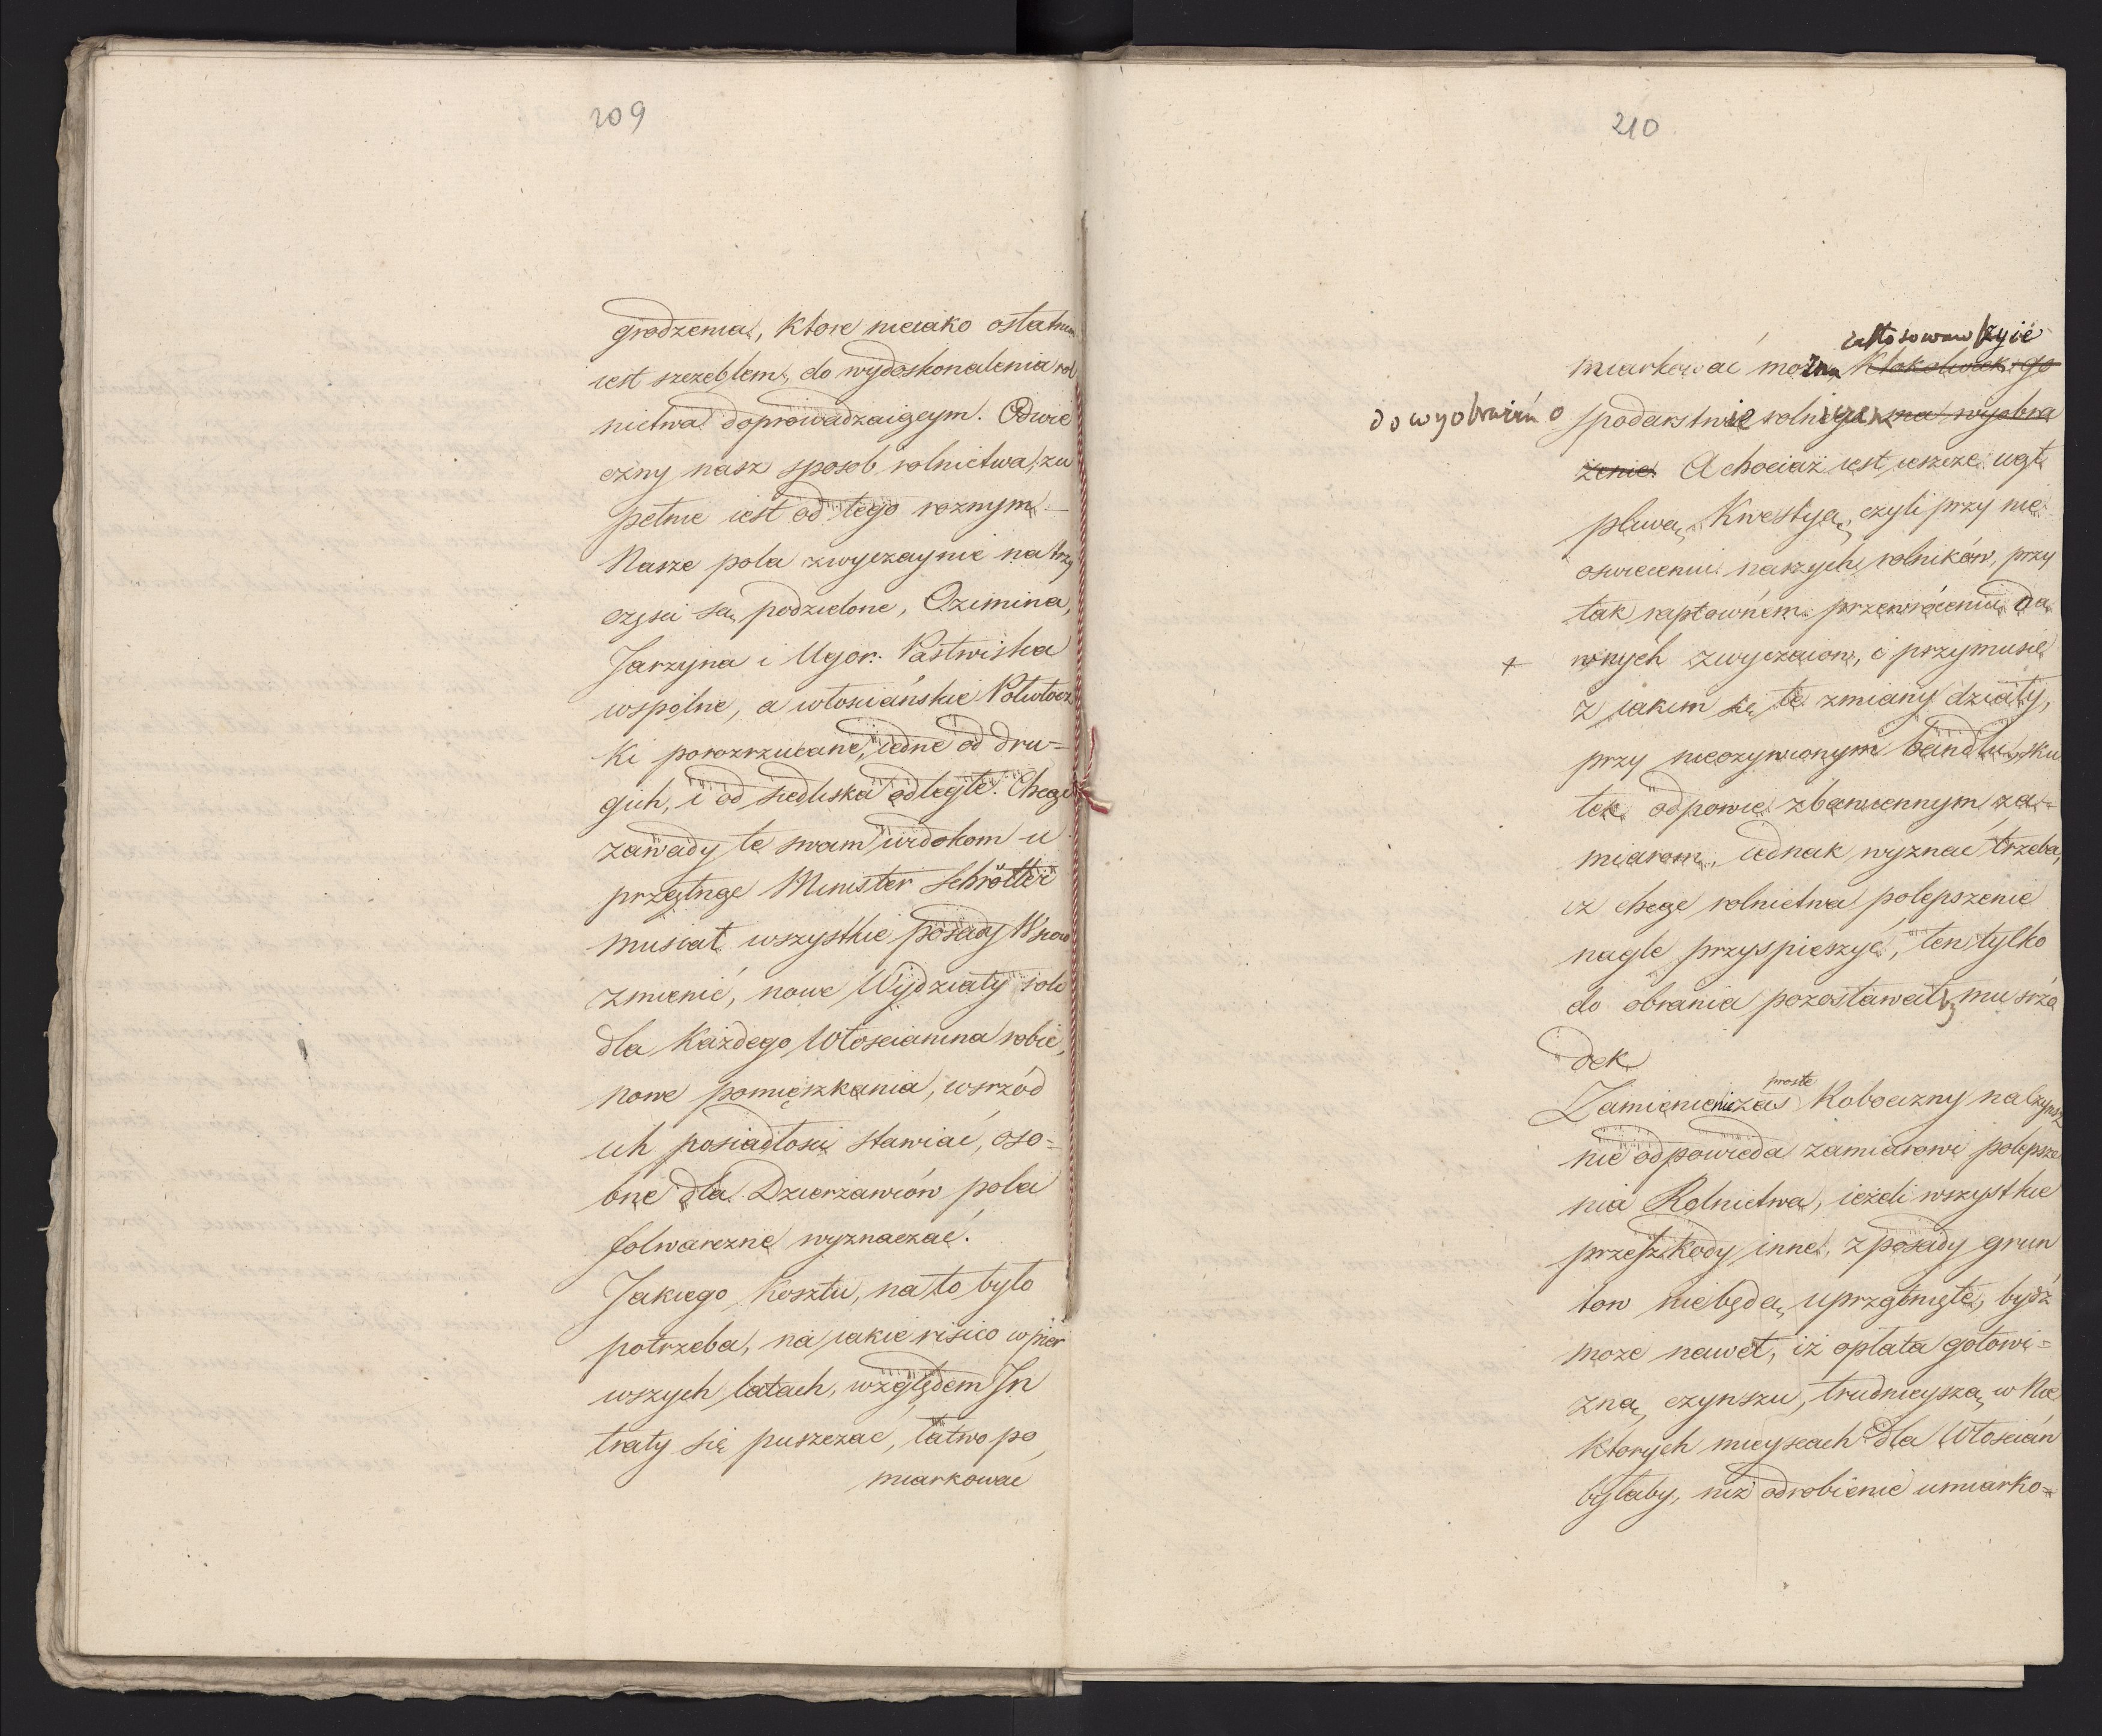 209
grodzenia, ktore nieiako ostatnim
iest szczeblem, do wydoskonalenia rol
nictwa doprowadzaiącym. Odwie
czny nasz sposob rolnictwa, zu
pełnie iest od tego roznym
Nasze pola zwyczaynie na trzy
części są podzielone, Ozimina,
Jarzyna i Ugor. Pastwiska
wspólne, a włosciańskie Połwłocz
ki porozrzucane, iedne od dru-
gich, i od siedliska odległe. Chcąc
zawady te swam widokom u
przątnąć Minister Schrötter
musiał wszystkie posady Wsiow
zmienić, nowe Wydziały roli
dla każdego Włoscianina robić,
nowe pomięszkania, wsrzód
ich posiadłosci stawiać, oso=
bne dla Dzierżawców pola
folwarczne wyznaczać.
Jakiego kosztu, na to było
potrzeba, na iakie risico w pier
wszych latach, względem In
traty się puszczać, łatwo po
miarkować
210
zastosowawszy ie
miarkować można ktokolwiek go
do wyobrażeń o spodarstwie rolniczem ma wyobra
żenie. A chociaż iest ieszcze wąt
pliwą kwestyą, czyli przy nie
oswieceniu naszych rolników, przy
tak raptownem przewróceniu da
+ wnych zwyczaiow, i przymusie
z iakim się te zmiany działy,
przy nieożywionym handlu, sku
tek odpowie zbawiennym za=
miarom, iednak wyznać trzeba,
iż chcąc rolnictwa polepszenie
nagle przyspieszyć, ten tylko
do obrania pozostawał mu srzo
dek
Zamienienie zas proste Robocizny na Czynsz
nie odpowieda zamiarowi polepsze
nia Rolnictwa, ieżeli wszystkie
przeszkody inne, z posady grun
tow niebędą uprzątnięte, bydź
może nawet, iż opłata gotowi=
zną czynszu, trudnieyszą w Nie
ktorych mieyscach dla Włoscian
byłaby, niż odrobienie umiarko=